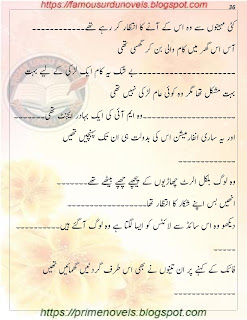 https://famousurdunovels.blogspot.com
36
کئی مہینوں سے وہ اس کے آنے کا انتظار کر رہے تھے۔۔۔۔۔۔۔۔۔۔۔۔
آس اس گھر میں کام والی بن کر گھسی تھی
۔۔۔۔۔۔۔۔۔۔۔۔۔۔۔۔۔۔۔۔۔۔۔بے شک یہ کام ایک لڑکی کے لیے بہت
بہت مشکل تھا مگر وہ کوئی عام لڑکی نہیں تھی
۔۔۔۔۔۔۔۔۔۔۔۔۔۔۔۔۔وہ ایم آئی کی ایک بہادر ایجنٹ تھی۔۔۔۔۔۔۔
اور یہ ساری انفارمیشن اس کی بدولت ہی ان تک پہنچیں تھیں
۔۔۔۔۔۔۔۔۔۔۔۔
وہ لوگ بلکل الرٹ جھاڑیوں کے پیچھے چھپے بیٹھے تھے۔۔۔۔۔۔۔۔
انھیں بس اپنے شکار کا انتظار تھا۔۔۔۔۔۔۔۔۔۔۔۔۔۔۔۔
دیکھو وہ اس سائڈ سے لائٹس کو ایسا لگتا ہے وہ لوگ آگئے ہیں۔۔۔۔۔۔۔۔
۔۔۔۔۔۔۔۔۔۔۔
کے کہنے پر ان تینوں نے بھی اس طرف گردنیں گھمائیں تھیں
۔۔۔۔۔۔۔۔۔۔۔
https://primenovels.blogspot.com